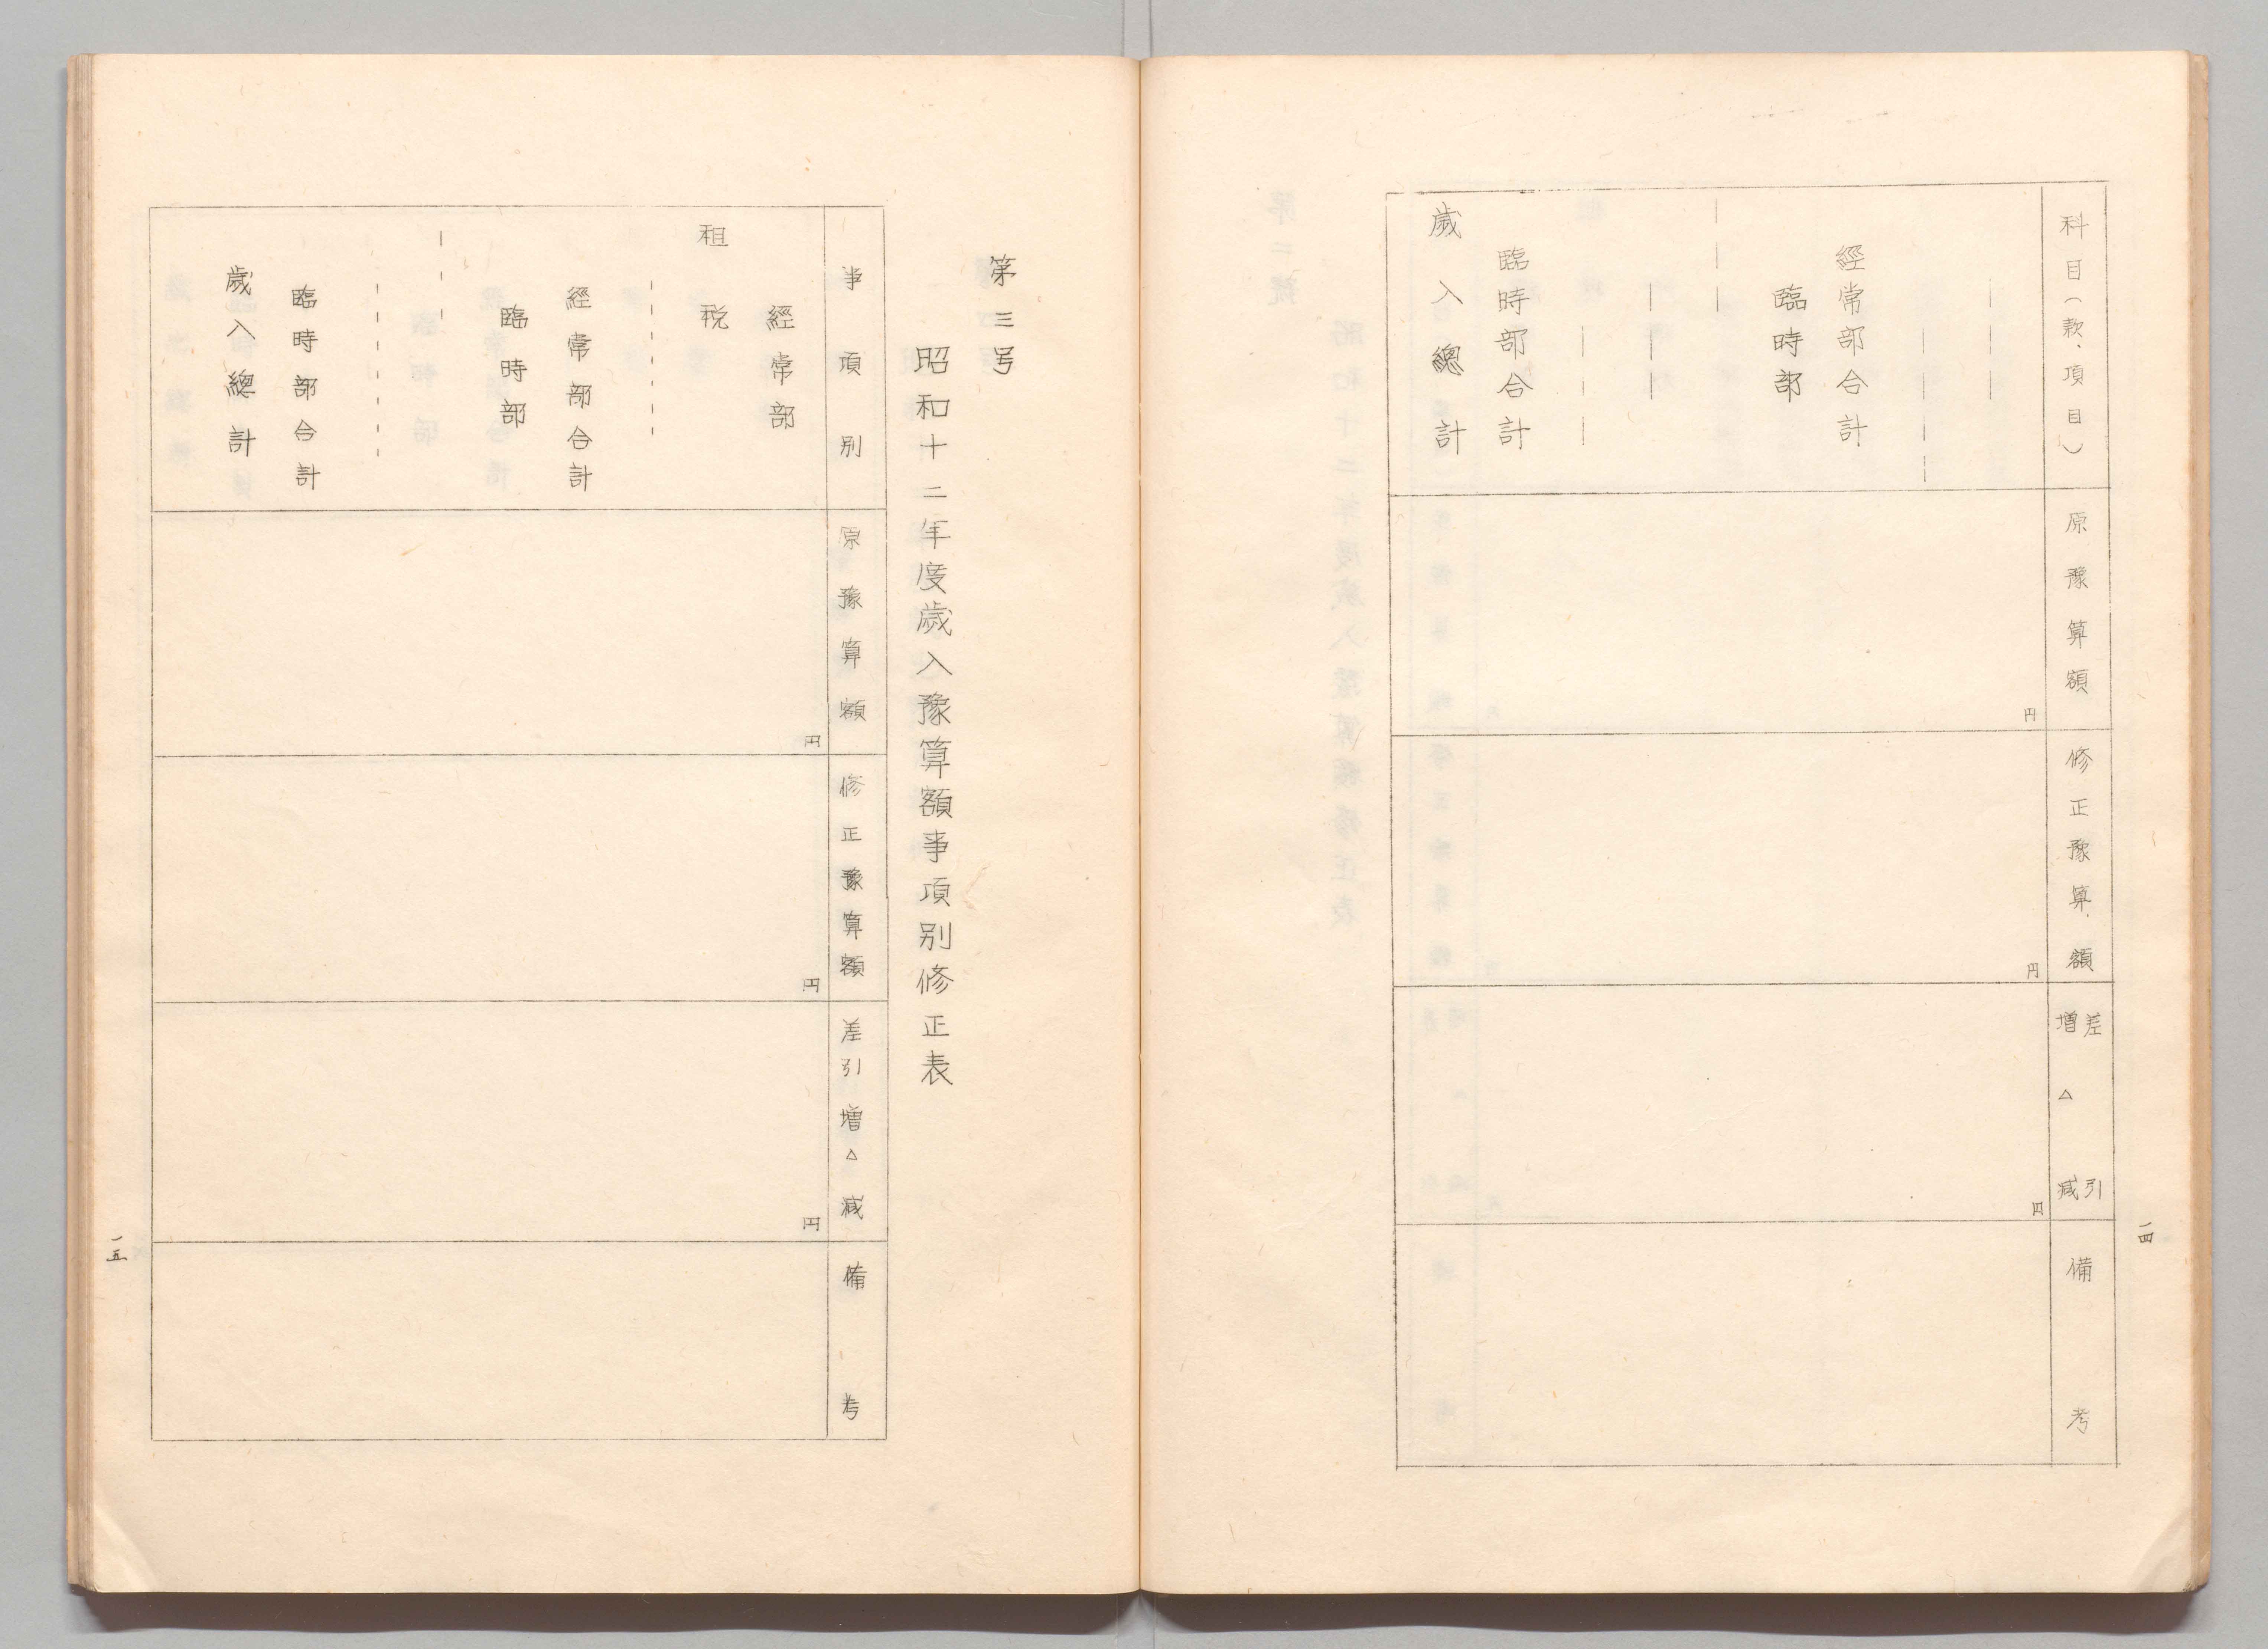 科目(款、項目)
原豫算額
円
修正豫算額
円
差引
増△減
円
備考
經常部合計
臨時部
臨時部合計
歲入總計
一四
第三号
昭和十二年度歲入豫算額事項別修正表
事項別
原豫算額
円
修正豫算額
円
差引増△減
円
備考
經常部
租税
經常部合計
臨時部
臨時部合計
歲入總計
一五